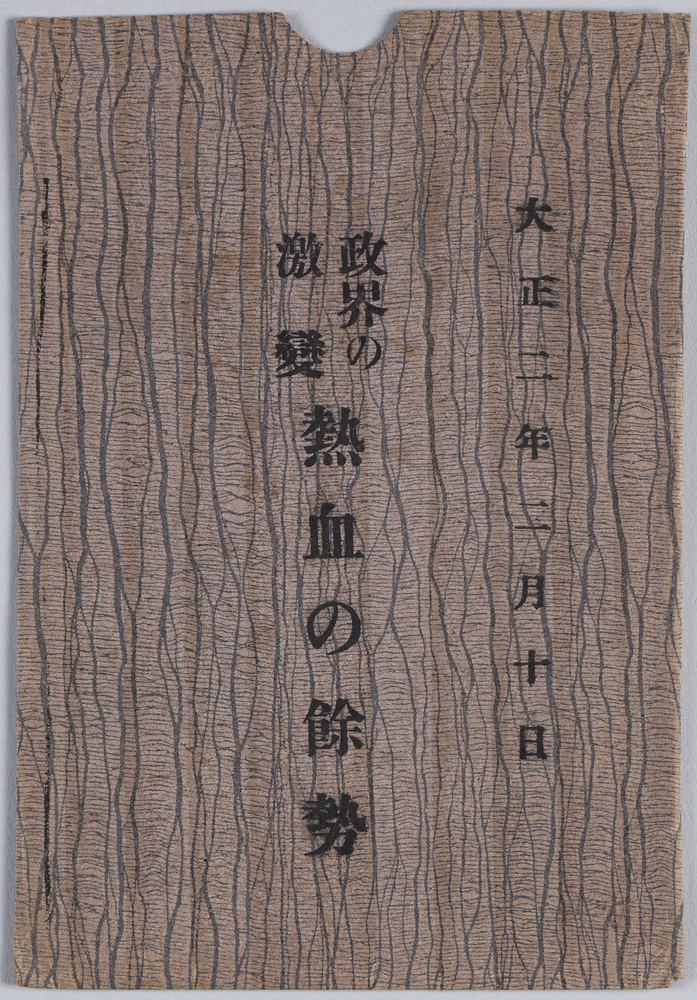 大正二年二月十日
政界の
激變
熱血の餘勢